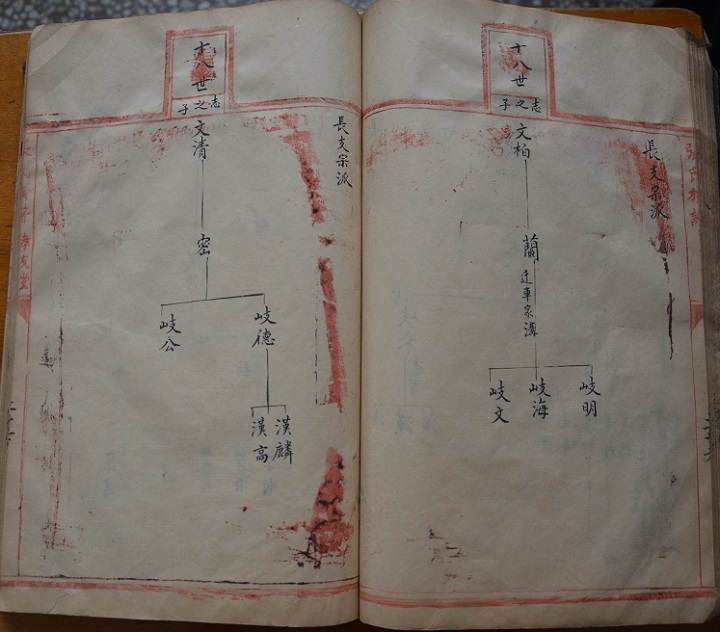 張氏宗譜
長支宗派
十八世
志之子
文柏
蘭
迁車家溝
岐明
岐海
岐文
長支宗派
十八世
志之子
文清
密
岐德
岐公
漢麟
漢高